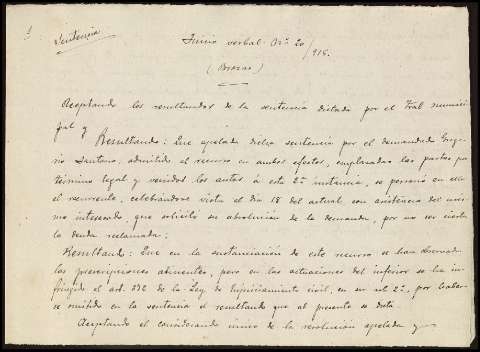 Sentencia
Juicio verbal Nº 20/918.
(Brozas)
Aceptando los resultandos de la sentencia dictada por el Tral munici-
pal y
Resultando: Que apelada dicha sentencia por el demandado Grego-
rio Santano, admitido el recurso en ambos efectos, emplazadas las partes por
término legal y venidos los autos á esta 2ª instancia, se personó en ella
el recurrente, celebrándose vista el día 18 del actual con asistencia del mis-
mo interesado, que solicitó su absolución de la demanda, por no ser cierta
la deuda reclamada;
Resultando: Que en la sustanciación de este recurso se han observado
las prescripciones atinentes, pero en las actuaciones del inferior se ha in-
fringido el art. 372 de la Ley de Enjuiciamiento civil, en su nº 2º, por haber-
se omitido en la sentencia el resultando que al presente se dicta.
Aceptando el considerando único de la resolución apelada y